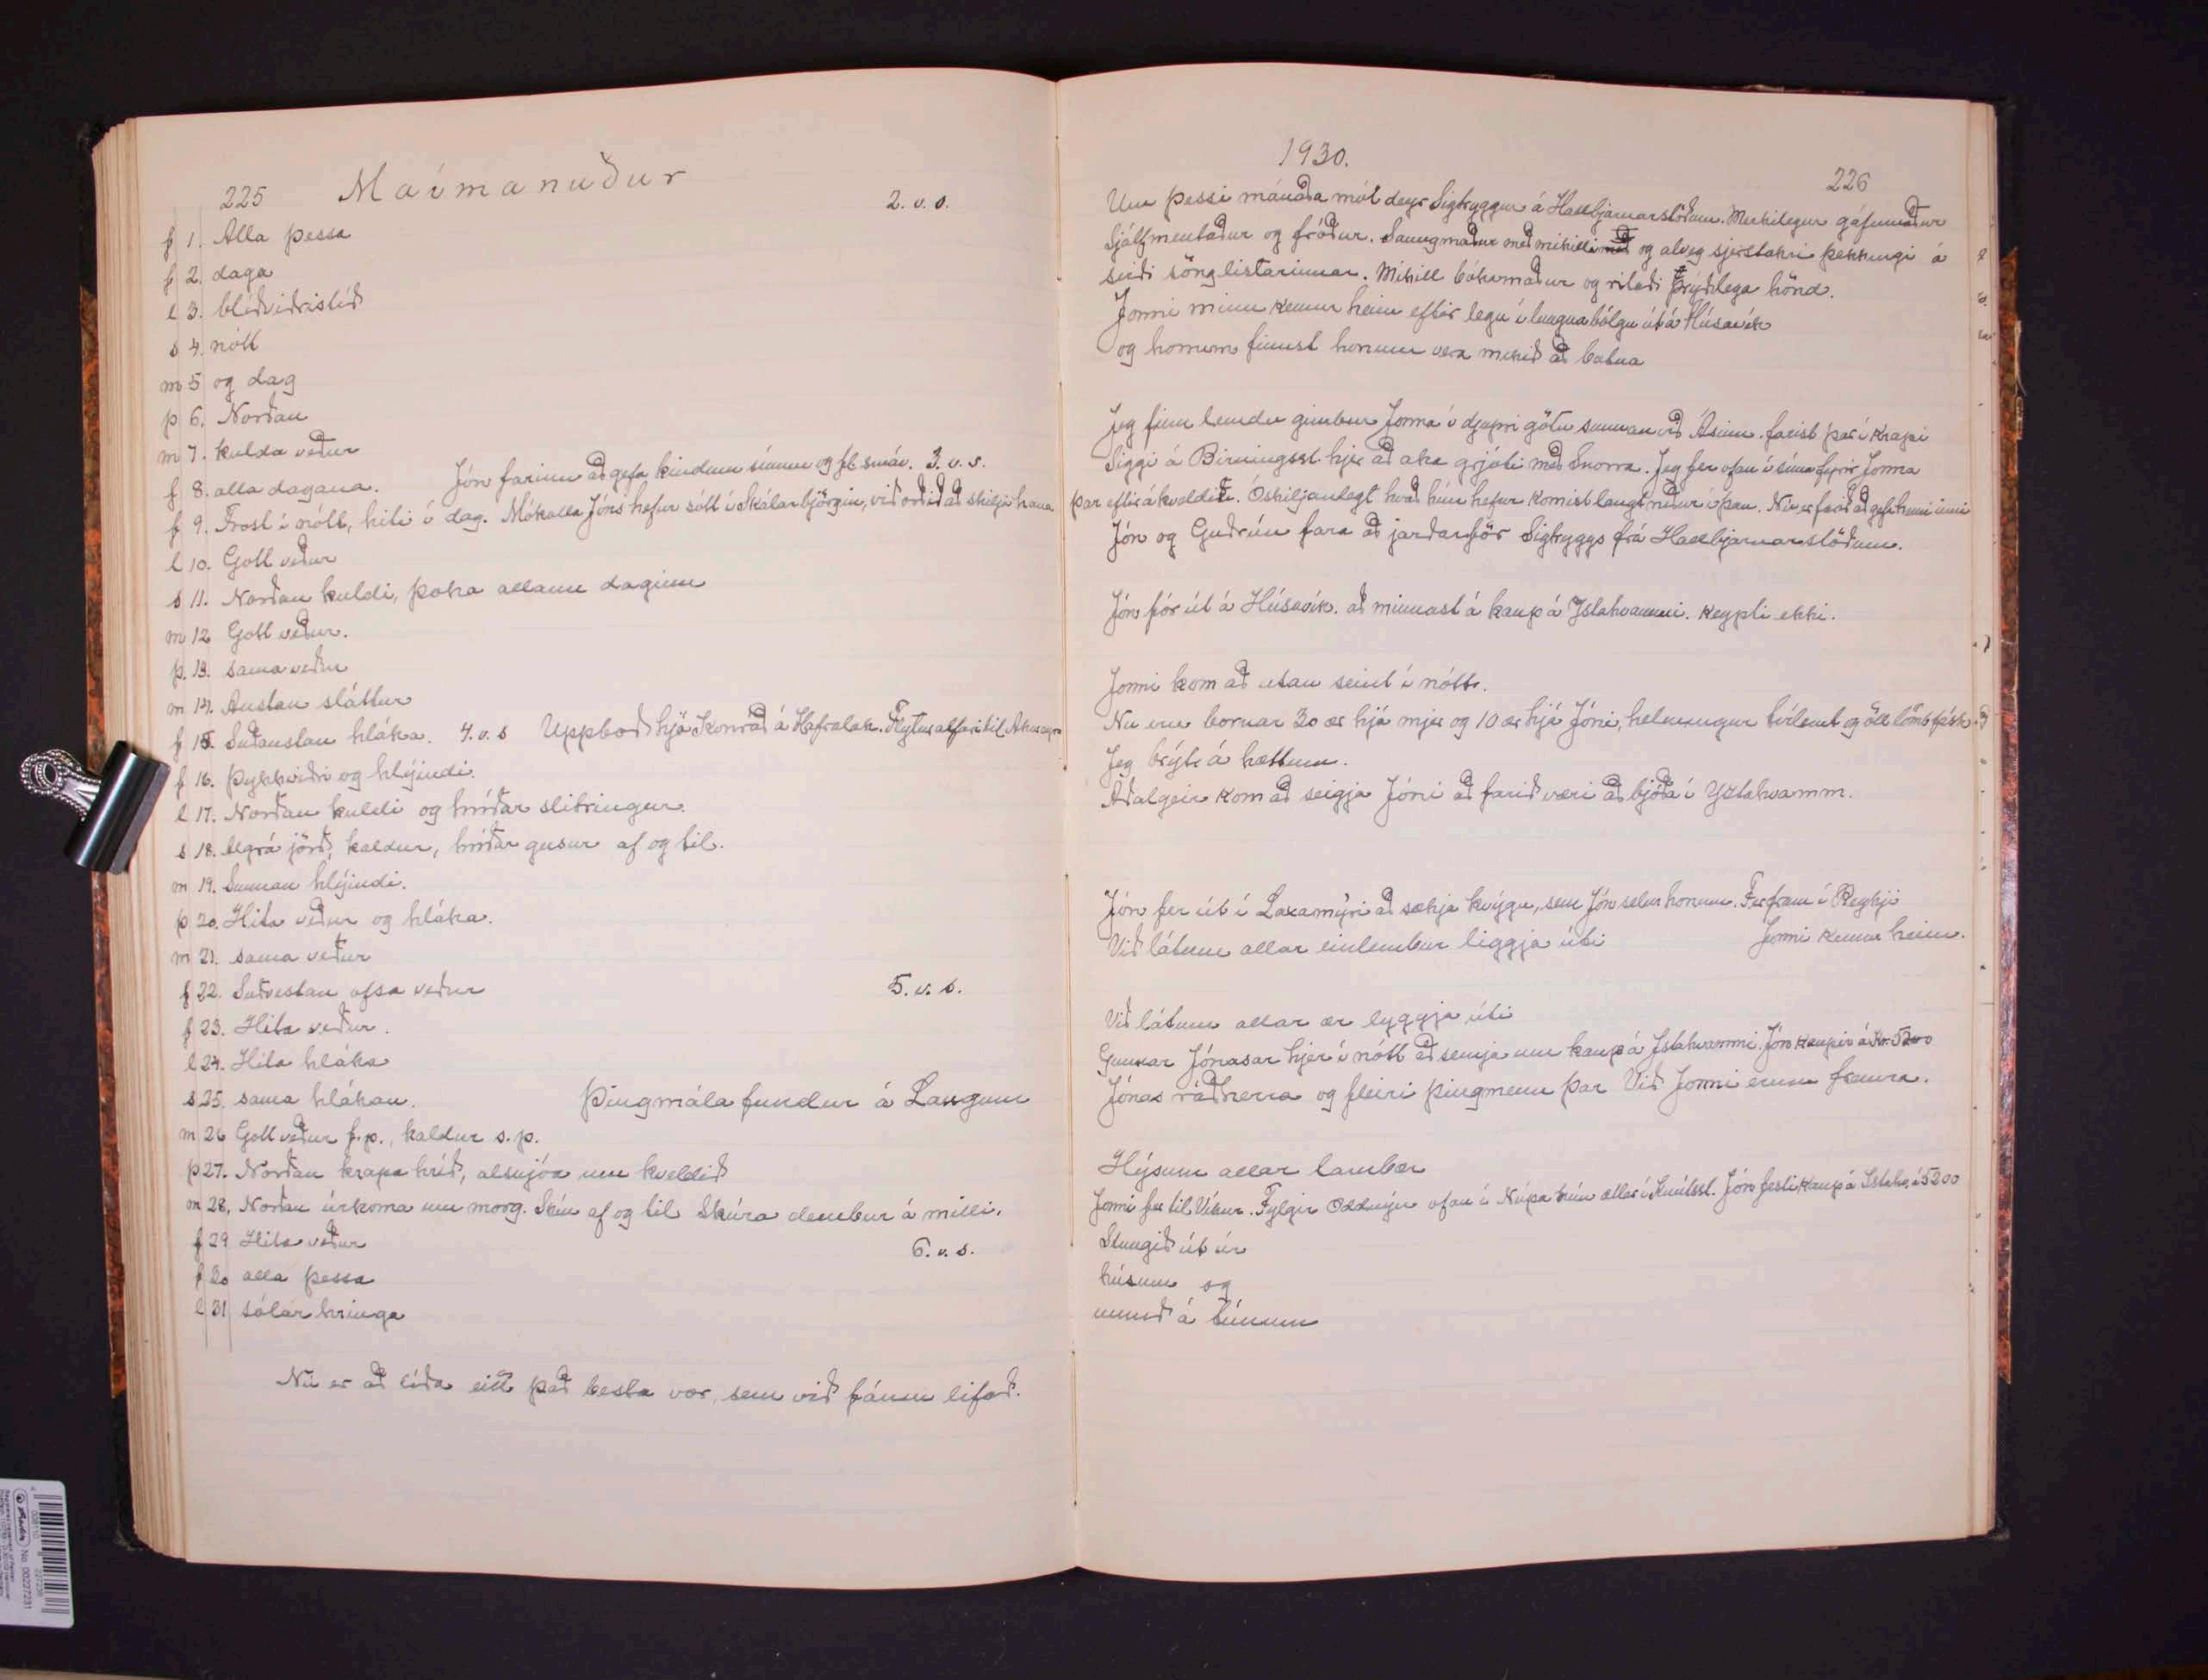 225 Maímanuður
2. v. s.
f 1. Alla þessa
f 2. daga
l 3. blíðviðristíð
s 4. nótt
m 5 og dag
þ 6. Norðan
m 7. kulda veður
f 8. alla dagana. Jón farinn að gefa kindum sínum og fl smáv. 3. v. s.
f 9. Frost í nótt, hiti í dag. Mókolla Jóns hefur sótt í Skálarbjörgin, við orðið að skilja hana
l 10. Gott veður
s 11. Norðan kuldi, þoka allann daginn
m 12 Gott veður.
þ. 13. sama veður
m 14. Austan sláttur
f 15. Suðaustan hláka. 4. v. s Uppboð hjá Konráð á Hafralæk. Flytur alfari til Akureyra
f 16. Þykkviðri og hlýindi.
l 17. Norðan kuldi og hríðar slitringur.
s 18. Algrá jörð, kaldur, hríðar gusur af og til.
m 19. Sunnan hlýindi.
þ 20. Hita veður og hláka.
m 21. sama veður
f 22. Suðvestan ofsa veður 5. v. s.
f 23. Hita veður.
l 24. Hita hláka
s 25. sama hlákan. Þingmála fundur á Laugum
m 26 Gott veður f.p., kaldur s.p.
þ 27. Norðan krapa hríð, alsnjóa um kveldið
m 28. Norðan úrkoma um morg. Skín af og til Skúra dembur á milli.
f 29 Hita veður 6. v. s.
f 30 alla þessa
l 31 sólar hringa
Nú er að líða eitt það besta vor, sem við fáum lifað.
1930.
226
Um þessi mánaða mót deyr Sigtryggur á Hallbjarnarstöðum. Merkilegur gáfumaður
Sjálfmentaður og fróður. Saungmaður með mikilli með og alveg sjerstakri þekkingi á
sviði sönglistarinnar. Mikill bókamaður og ritaði prýðilega hönd.
Jonni minn kemur heim eftir legu í lungnabólgu út á Húsavík
og honum finnst honum vera mikið að batna
Jeg finn lemdu gimbur Jonna í djúpri götu sunnan við Ásinn. farist þar í krapi
Siggi á Birningsst. hjer að aka grjóti með Snorra. Jeg fer ofan í síma fyrir Jonna
þar eftir á kveldið. Óskiljanlegt hvað hún hefur komist langt niður í þau. Nú er farið að gefa henni inni
Jón og Guðrún fara að jarðarför Sigtryggs frá Hallbjarnarstöðum.
Jón fór út á Húsavík. að minnast á kaup á Ystahvammi. Keypti ekki.
Jonni kom að utan seint í nótt.
Nu eru bornar 30 ær hjá mjer og 10 ær hjá Jóni, helmingur tvílemt og öll lömb frísk
Jeg brýt á hættum.
Aðalgeir kom að seigja Jóni að farið væri að bjóða í Ystahvamm.
Jón fer út í Laxamýri að sækja kvígu, sem Jón selur honum. Fer fram í Reykji
Við látum allar einlembur liggja úti Jonni kemur heim.
Við látum allar ær lyggja úti
Gunnar Jónasar hjer í nótt að semja um kaup á Istahvammi. Jón kaupir á kr. 5200
Jónas ráðherra og fleiri þingmenn þar Við Jonni erum framra.
Hýsum allar lambær
Jonni fer til Víkur. Fylgir Oddnýu ofan í Núpa hún ætlar í Knútsst. Jón festi kaup á Istahv. á 5200
Stungið út úr
húsum og
unnið á túnum